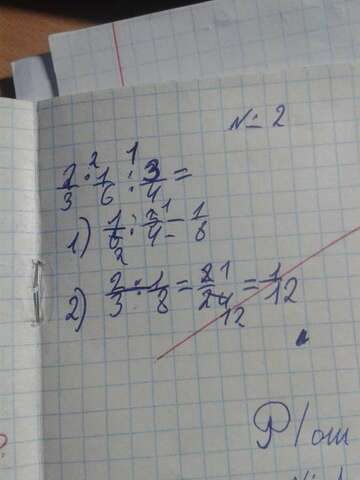 № 2
2 1
2/3 · 1/6 : 3/4 =
1) 1/6 : 3/4 = 1/8
2) 2/3 · 1/8 = 2/24 = 1/12
12
Р/ош